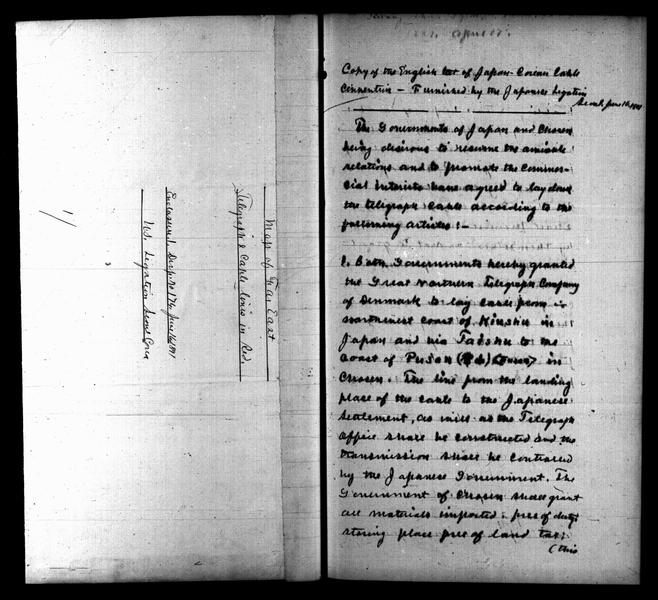 1/
Enclosure 1. Desp. No 176 June 16/91
U.S. Legation Seoul Corea
Telegraph & Cable lines in Red.
Map of Far East
Copy of the English text of Japan-Corean Cable
Convention – Furnished by the Japanese Legation
Seoul June 16, 1891
The Governments of Japan and Chosen
being desirous to the amicable
relations and to promote the commer-
cial interests have agreed to lay down
the telegraph cable according to the
following articles:–
1. Both Governments hereby granted
the Great Northern Telegraph Company
of Denmark to lay cable from
northwest coast of Kiushu in
Japan and via Tsishu to the
coast of Pusan in
Chosen. The line from the landing
place of the cable to the Japanese
Settlement, as well as the Telegraph
Office shall be constructed and the
transmission shall be controlled
by the Japanese Government. The
Government of Chosen shall grant
all materials imported free of duty;
storing place free of land tax;
(this